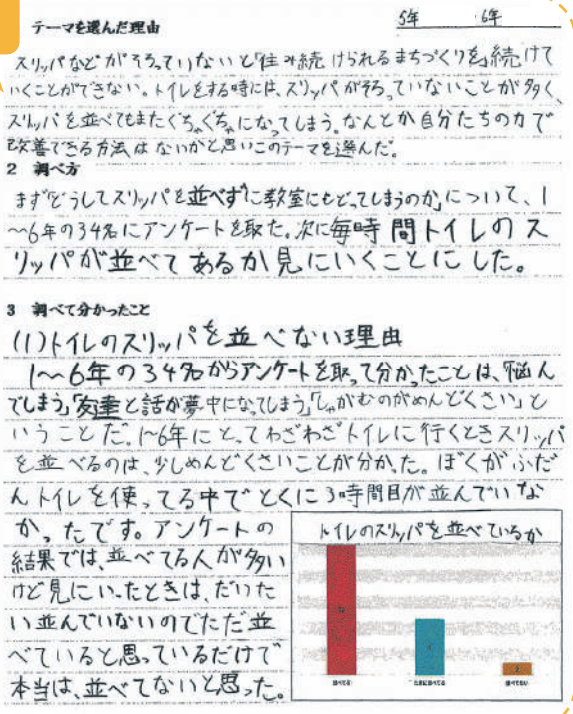 5年 ・6年
テーマを選んだ理由
スリッパなどがそろっていないと「住み続けられるまちづくりを」続けて
いくことができない。トイレをする時には、スリッパがそろっていないことが多く、
スリッパを並べてもまたぐちゃぐちゃになってしまう。なんとか自分たちの力で
改善できる方法はないかと思いこのテーマを選んだ。
2 調べ方
まず「どうしてスリッパを並べずに教室にもどってしまうのか」について、1
～6年の34名にアンケートを取た。次に毎時間トイレのス
リッパが並べてあるか見にいくことにした。
3 調べて分かったこと
(1)トイレのスリッパを並べない理由
1～6年の34名からアンケートを取って分かったことは、「悩ん
でしまう」「友達と話が夢中になってしまう」「しゃがむのがめんどくさい」と
いうことだ。1～6年にとってわざわざトイレに行くときスリッパ
を並べるのは、少しめんどくさいことが分かった。ぼくがふだ
んトイレを使ってる中でとくに3時間目が並んでいな
かったです。アンケートの
結果では、並べてる人が多い
けど見にいったときは、だいた
い並んでいないのでただ並
べていると思っているだけで
本当は、並べてないと思った。
トイレのスリッパを並べているか
並べてる ときに並べてる 並べてない